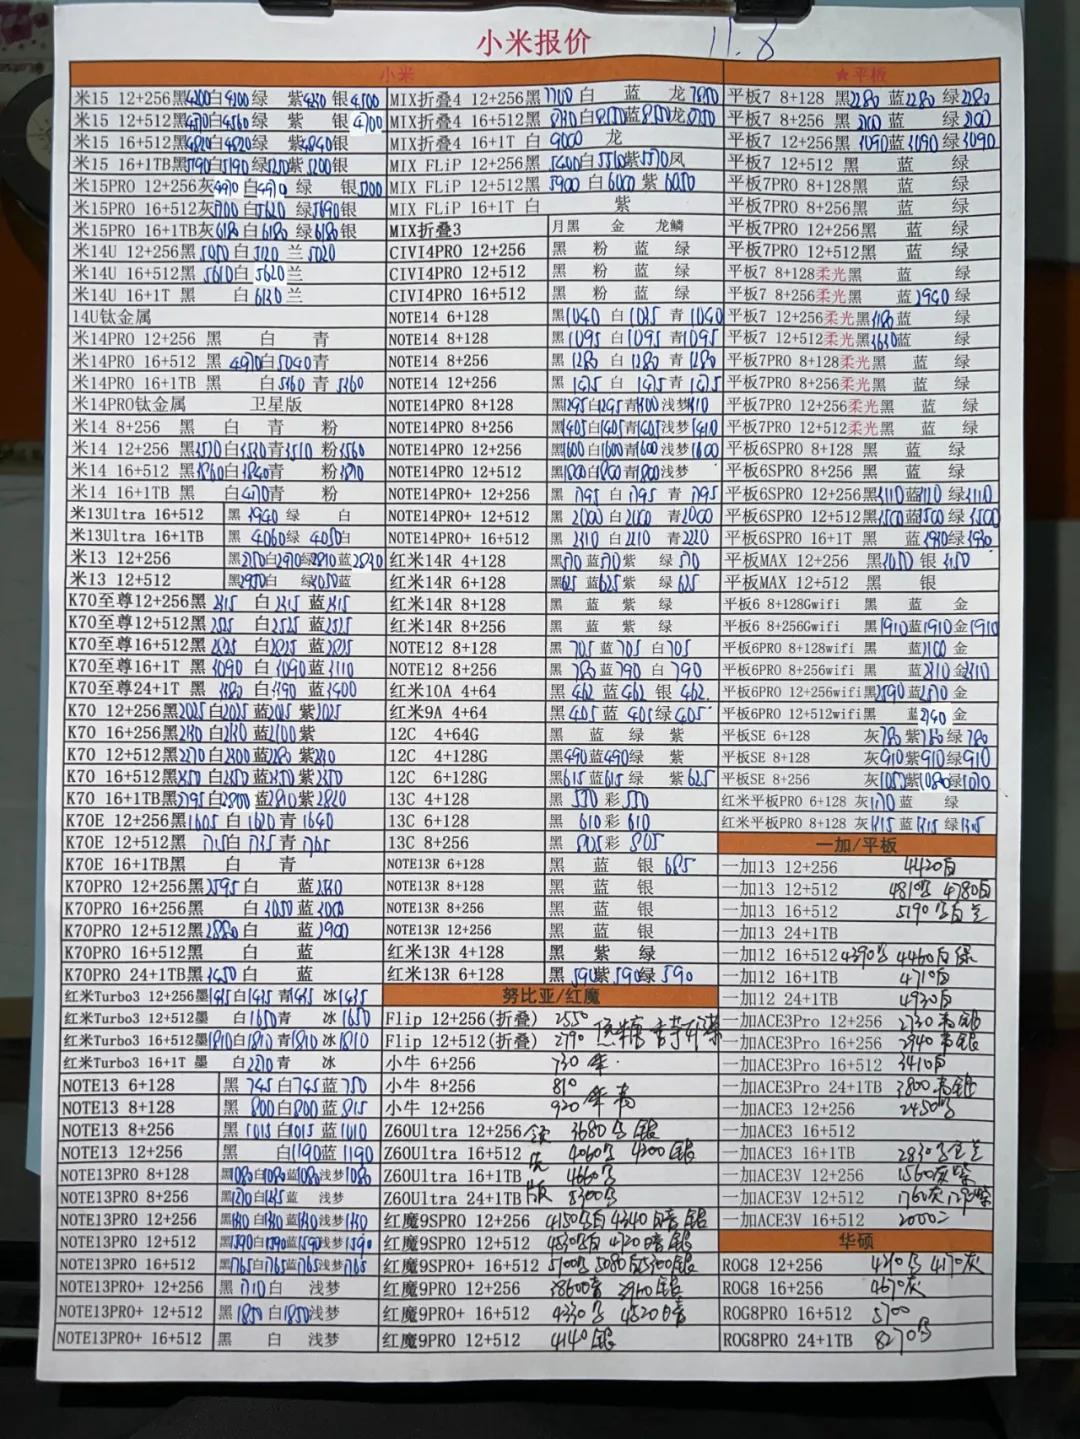 小米报价 11.8
小米
米15 12+256黑4200白4200绿 紫4230 银4500
米15 12+512黑4570白4560绿 紫 银4700
米15 16+512黑4820白4820绿 紫4840银
米15 16+1TB黑5190白5190绿5250紫5200银
米15PRO 12+256灰4970白4970 绿 银5200
米15PRO 16+512灰 白5620 绿5690银
米15PRO 16+1TB灰6180白6180 绿6180银
米14U 12+256黑 白5120 兰5020
米14U 16+512黑5610白5620兰
米14U 16+1T 黑 白6130兰
14U钛金属
米14PRO 12+256 黑 白 青
米14PRO 16+512 黑4970白5040青
米14PRO 16+1TB 黑 白5160 青5260
米14PRO钛金属 卫星版
米14 8+256 黑 白 青 粉
米14 12+256 黑3520白3530青3510 粉3560
米14 16+512 黑3860白3840青 粉3890
米14 16+1TB 黑 白 青 粉
米13Ultra 16+512 黑3940绿 白
米13Ultra 16+1TB 黑4060绿4050白
米13 12+256 黑 白 绿2810蓝2820
米13 12+512 黑2950白 绿3050蓝
K70至尊12+256黑2315 白2315 蓝2315
K70至尊12+512黑2525 白2525 蓝2525
K70至尊16+512黑2825 白2825 蓝2825
K70至尊16+1T 黑3090 白3090蓝3110
K70至尊24+1T 黑 白 蓝3400
K70 12+256黑2025白2025蓝2025紫2025
K70 16+256黑2130白2130蓝2100紫
K70 12+512黑2270白2300蓝2280紫
K70 16+512黑2350白2350蓝2350紫2350
K70 16+1TB黑2795白2800蓝2810紫2820
K70E 12+256黑1605白1620青1640
K70E 12+512黑1715白1735青1765
K70E 16+1TB黑 白 青
K70PRO 12+256黑2595白 蓝
K70PRO 16+256黑 白3050蓝3000
K70PRO 12+512黑2880白 蓝2900
K70PRO 16+512黑 白 蓝
K70PRO 24+1TB黑3450白 蓝
红米Turbo3 12+256墨1435白1435 青1435 冰1435
红米Turbo3 12+512墨 白1650青 冰1650
红米Turbo3 16+512墨1810白1810青1810冰1810
红米Turbo3 16+1T 墨 白2270青 冰
NOTE13 6+128 黑745白745蓝750
NOTE13 8+128 黑800白800蓝815
NOTE13 8+256 黑1015白1015蓝1010
NOTE13 12+256 黑 白1190蓝1190
NOTE13PRO 8+128 黑1080白1080蓝1080浅梦1080
NOTE13PRO 8+256 黑1270白 蓝 浅梦
NOTE13PRO 12+256 黑 白 蓝 浅梦
NOTE13PRO 12+512 黑1590白1590蓝1590浅梦1590
NOTE13PRO 16+512 黑1765白1765蓝1765浅梦1765
NOTE13PRO+ 12+256 黑1710白 浅梦
NOTE13PRO+ 12+512 黑1850白1850浅梦
NOTE13PRO+ 16+512 黑 白 浅梦
MIX折叠4 12+256黑7700白 蓝 龙
MIX折叠4 16+512黑8130白8150蓝8150龙8150
MIX折叠4 16+1T 白9000 龙
MIX FLiP 12+256黑5400白5510紫5570凤
MIX FLiP 12+512黑5900 白6000 紫6050
MIX FLiP 16+1T 白 紫
MIX折叠3 月黑 金 龙鳞
CIVI4PRO 12+256 黑 粉 蓝 绿
CIVI4PRO 12+512 黑 粉 蓝 绿
CIVI4PRO 16+512 黑 粉 蓝 绿
NOTE14 6+128 黑1040 白1035 青1040
NOTE14 8+128 黑1095 白1095青1095
NOTE14 8+256 黑1280 白1280青1280
NOTE14 12+256 黑1435 白1435青1435
NOTE14PRO 8+128 黑1295白1295青1300浅梦1310
NOTE14PRO 8+256 黑1405白1405青1405浅梦1410
NOTE14PRO 12+256 黑1600白1600青1600浅梦1600
NOTE14PRO 12+512 黑1800白1800青1800浅梦
NOTE14PRO+ 12+256 黑1795 白1795 青1795
NOTE14PRO+ 12+512 黑2000 白2000 青2000
NOTE14PRO+ 16+512 黑2210 白2210 青2220
红米14R 4+128 黑570蓝570紫 绿570
红米14R 6+128 黑625蓝625紫 绿625
红米14R 8+128 黑 蓝 紫 绿
红米14R 8+256 黑 蓝 紫 绿
NOTE12 8+128 黑705蓝705 白705
NOTE12 8+256 黑780蓝790 白790
红米10A 4+64 黑462蓝462银462
红米9A 4+64 黑405蓝405绿405
12C 4+64G 黑 蓝 绿 紫
12C 4+128G 黑490蓝490绿 紫
12C 6+128G 黑615蓝615绿 紫625
13C 4+128 黑550彩550
13C 6+128 黑610彩610
13C 8+256 黑805彩805
NOTE13R 6+128 黑 蓝 银685
NOTE13R 8+128 黑 蓝 银
NOTE13R 8+256 黑 蓝 银
NOTE13R 12+256 黑 蓝 银
红米13R 4+128 黑 紫 绿
红米13R 6+128 黑590紫590绿590
努比亚/红魔
Flip 12+256(折叠) 2550
Flip 12+512(折叠) 2790
小牛 6+256 730
小牛 8+256 810
小牛 12+256 920
Z60Ultra 12+256 领 3680 银
Z60Ultra 16+512 先 4060 4200银
Z60Ultra 16+1TB 4660
Z60Ultra 24+1TB 版 5300
红魔9SPRO 12+256 4150 白4340 暗 银
红魔9SPRO 12+512 4530 白4720暗 银
红魔9SPRO+ 16+512 5100 5080白 银
红魔9PRO 12+256 3860 3960银
红魔9PRO+ 16+512 4330 4520暗
红魔9PRO 12+512 4140银
★平板
平板7 8+128 黑2280蓝2280绿2280
平板7 8+256 黑 蓝 绿
平板7 12+256黑 蓝3090绿3090
平板7 12+512 黑 蓝 绿
平板7PRO 8+128黑 蓝 绿
平板7PRO 8+256黑 蓝 绿
平板7PRO 12+256黑 蓝 绿
平板7PRO 12+512黑 蓝 绿
平板7 8+128柔光黑 蓝 绿
平板7 8+256柔光黑 蓝2940绿
平板7 12+256柔光黑3180蓝 绿
平板7 12+512柔光黑3630蓝 绿
平板7PRO 8+128柔光黑 蓝 绿
平板7PRO 8+256柔光黑 蓝 绿
平板7PRO 12+256柔光黑 蓝 绿
平板7PRO 12+512柔光黑 蓝 绿
平板6SPRO 8+128 黑 蓝 绿
平板6SPRO 8+256 黑 蓝 绿
平板6SPRO 12+256黑3110蓝3110绿3110
平板6SPRO 12+512黑3500蓝3500绿3500
平板6SPRO 16+1T 黑 蓝3930绿3930
平板MAX 12+256 黑 银
平板MAX 12+512 黑 银
平板6 8+128Gwifi 黑 蓝 金
平板6 8+256Gwifi 黑1910蓝1910金1910
平板6PRO 8+128wifi 黑 蓝2100金
平板6PRO 8+256wifi 黑 蓝2310金2310
平板6PRO 12+256wifi黑2590蓝2570金
平板6PRO 12+512wifi黑 蓝2740金
平板SE 6+128 灰780紫780绿780
平板SE 8+128 灰910紫910绿910
平板SE 8+256 灰 紫 绿
红米平板PRO 6+128 灰 蓝 绿
红米平板PRO 8+128 灰1315蓝1315绿
一加/平板
一加13 12+256 4420白
一加13 12+512 4810 4780白
一加13 16+512 5190 白兰
一加13 24+1TB
一加12 16+512 4390 4460白绿
一加12 16+1TB 4710白
一加12 24+1TB 4930白
一加ACE3Pro 12+256 2730 银
一加ACE3Pro 16+256 2940 银
一加ACE3Pro 16+512 3410白
一加ACE3Pro 24+1TB 3800 银
一加ACE3 12+256 2450
一加ACE3 16+512
一加ACE3 16+1TB 2830 金兰
一加ACE3V 12+256 1560灰紫
一加ACE3V 12+512 1760灰 紫
一加ACE3V 16+512 2000
华硕
ROG8 12+256 4170灰
ROG8 16+256 4670灰
ROG8PRO 16+512 5700
ROG8PRO 24+1TB 8270